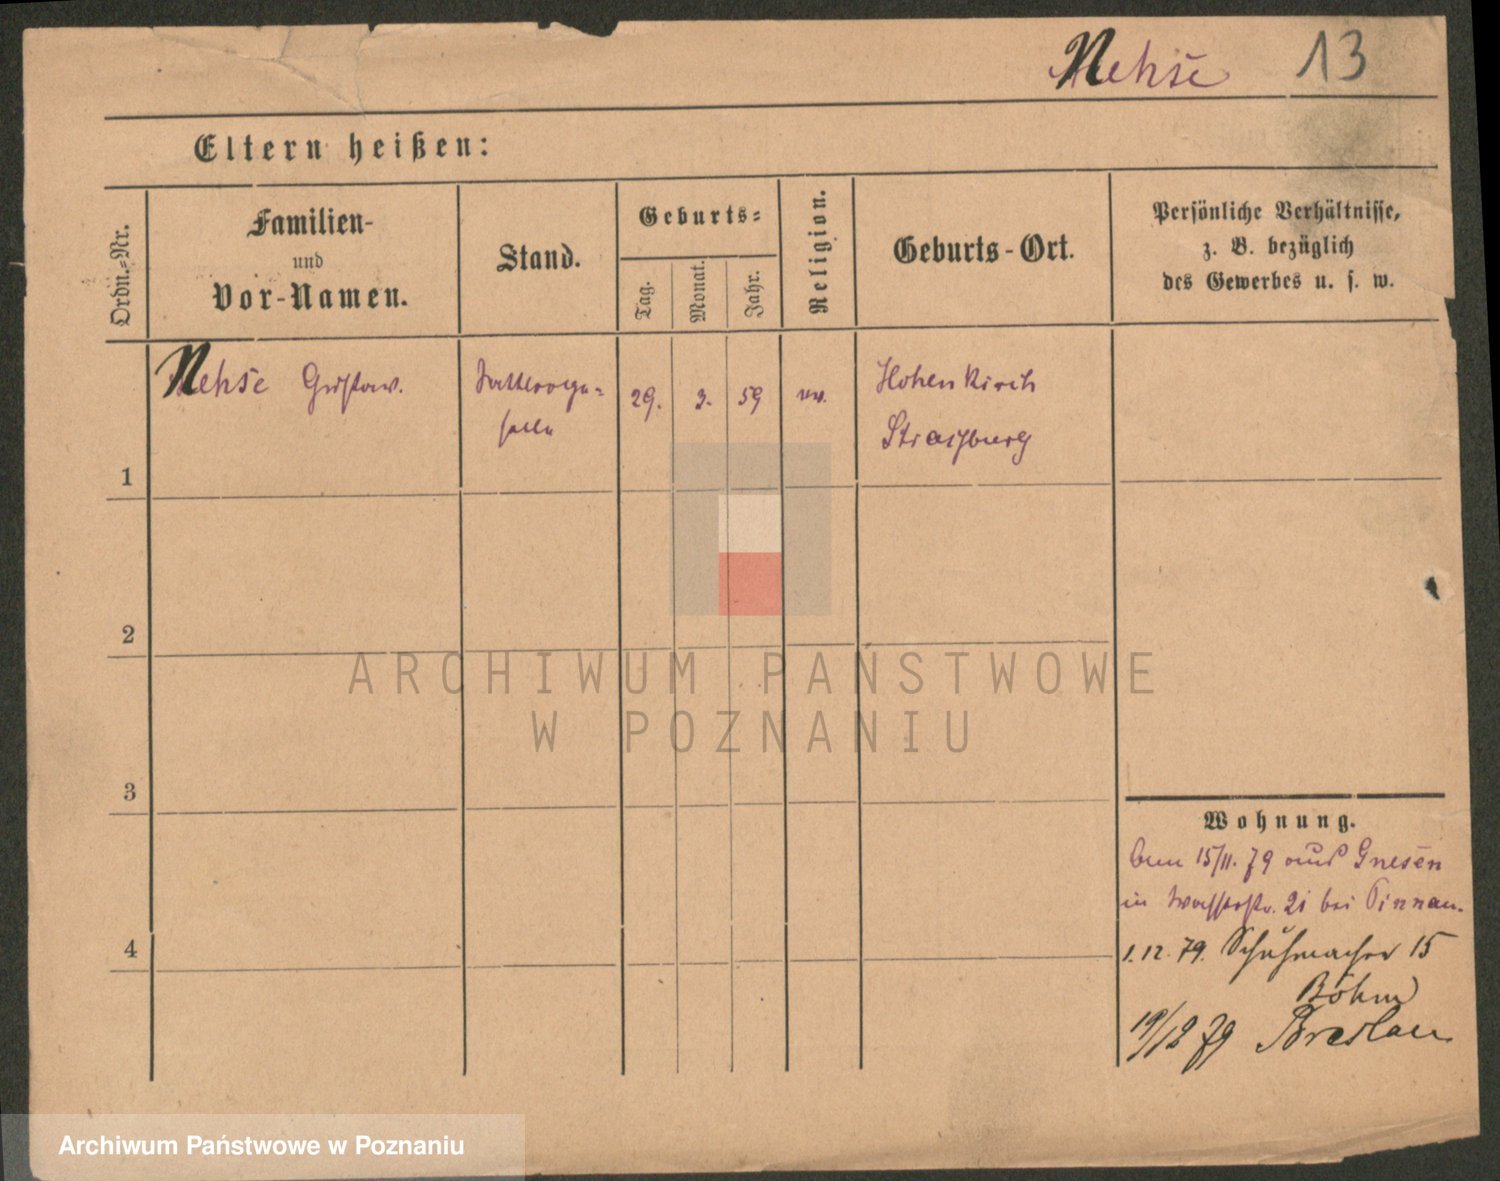 Nehse 13
Eltern heißen:
Ordn.-Nr.
Familien-
und
Vor-Namen.
Stand.
Geburts-
Tag.
Monat.
Jahr.
Religion.
Geburts-Ort.
Persönliche Verhältnisse,
z. B. bezüglich
des Gewerbes u. s. w.
1
Nehse Gustav.
Sattlerge-
selle
29.
3.
59
ev.
Hohenkirch
Strasburg
2
3
4
ARCHIWUM PAŃSTWOWE
W POZNANIU
Wohnung.
15/11. 79 aus Gnesen
in Wasserstr. 21 bei Pinnau.
1.12.79. Schuhmacher 15
Böhm
19/12 79 Breslau
Archiwum Państwowe w Poznaniu